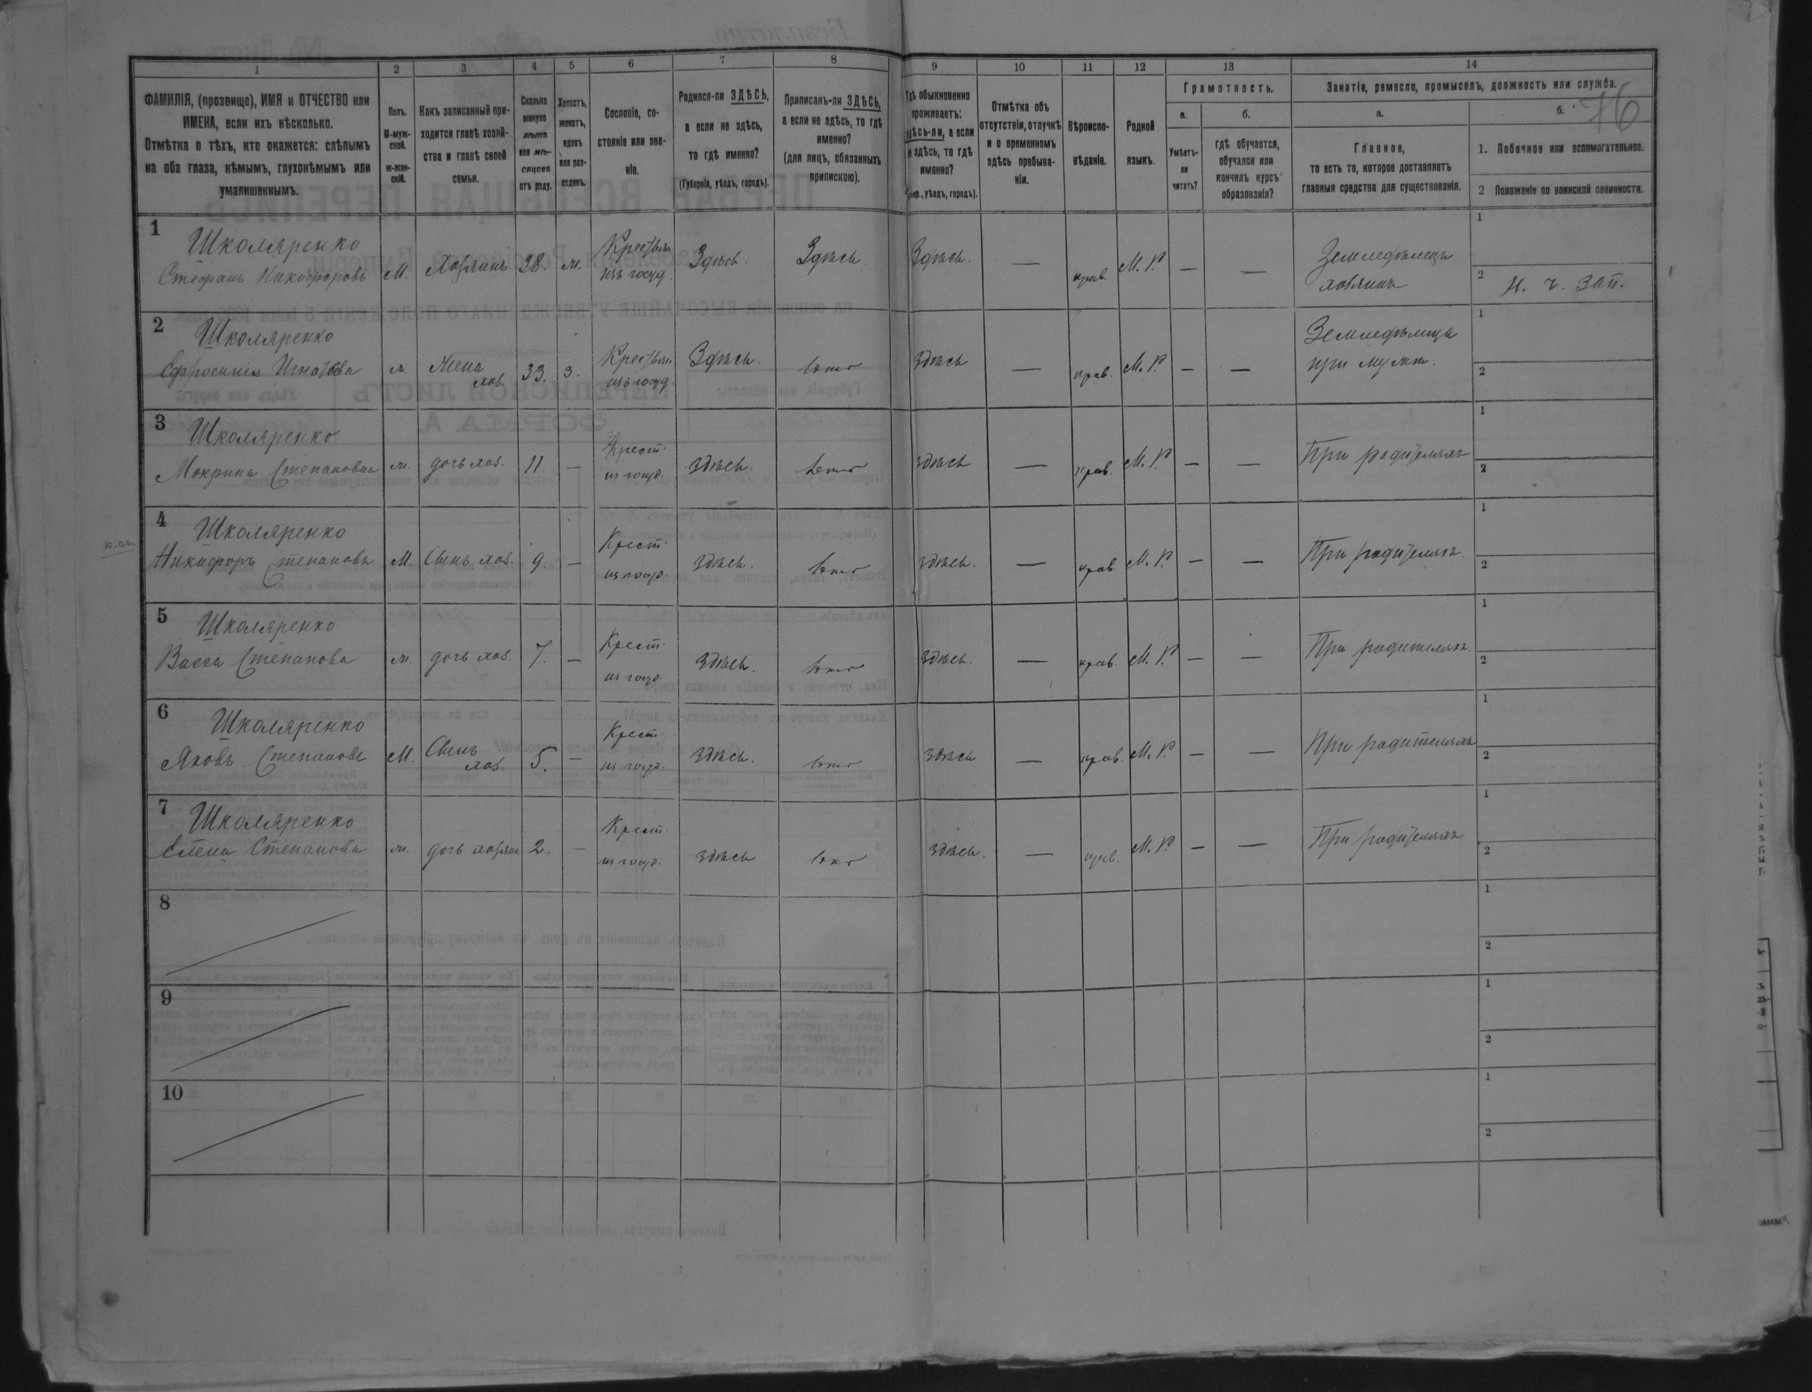 1 2 3 4 5 6 7 8 9 10 11 12 13 14
ФАМИЛІЯ, (прозвище), ИМЯ и ОТЧЕСТВО или
ИМЕНА, если ихъ нѣсколько.
Отмѣтка о тѣхъ, кто окажется: слѣпымъ
на оба глаза, нѣмымъ, глухонѣмымъ или
умалишеннымъ.
Полъ.
М-муж-
ской.
ж-жен-
скій.
Какъ записанный при-
ходится главѣ хозяй-
ства и главѣ своей
семьи.
Сколько
минуло
лѣтъ
или мѣ-
сяцевъ
отъ роду.
Холостъ,
женатъ,
вдовъ
или раз-
веденъ.
Сословіе, со-
стояніе или зва-
ніе.
Родился-ли ЗДѢСЬ,
а если не здѣсь,
то гдѣ именно?
(Губернія, уѣздъ, городъ).
Приписанъ-ли ЗДѢСЬ,
а если не здѣсь, то гдѣ
именно?
(для лицъ, обязанныхъ
припискою).
Гдѣ обыкновенно
проживаетъ:
здѣсь-ли, а если
не здѣсь, то гдѣ
именно?
уѣздъ, городъ).
Отмѣтка объ
отсутствіи, отлучкѣ
и о временномъ
здѣсь пребыва-
ніи.
Вѣроиспо-
вѣданіе.
Родной
языкъ.
Грамотность.
а.
Умѣетъ-
ли
читать?
б.
гдѣ обучается,
обучался или
кончилъ курсъ
образованія?
Занятіе, ремесло, промыселъ, должность или служба.
а.
Главное,
то есть то, которое доставляетъ
главныя средства для существованія.
б.
76
1. Побочное или вспомогательное.
2 Положеніе по воинской повинности.
1
Школяренко
Стефанъ Никифоровъ М. Хозяинъ 38. м. Крестьян. изъ госуд. Здѣсь Здѣсь Здѣсь. — прав. М. Р. — — Земледѣлецъ хозяинъ
1
2 Н. ч. Зап.
2
Школяренко
Ефросинія Игнатова ж. Жена хоз. 33. з. Крестьян изъ госуд. Здѣсь. здѣсь — прав. М. Р. — — Земледѣлица при мужѣ.
1
2
3
Школяренко
Мокрина Степановна ж. дочь хоз. 11. — Крест. из госуд. здѣсь. здѣсь — прав. М. Р. — — При родителяхъ
1
2
4
Школяренко
Никифоръ Степановъ М. Сынъ хоз. 9. — Крест. из госуд. здѣсь. здѣсь. — прав М. Р. — — При родителяхъ.
1
2
5
Школяренко
Васса Степанова ж. дочь хоз. 7. — Крест. из госуд. здѣсь. здѣсь. — прав. М. Р. — — При родителяхъ.
1
2
6
Школяренко
Яковъ Степановъ М. Сынъ хоз. 5. — Крест. из госуд. здѣсь. здѣсь — прав. М. Р. — — При родителяхъ
1
2
7
Школяренко
Елена Степанова ж. дочь хозяин 2. — Крест. из госуд. здѣсь здѣсь. — прав. М. Р. — — При родителяхъ
1
2
8
1
2
9
1
2
10
1
2